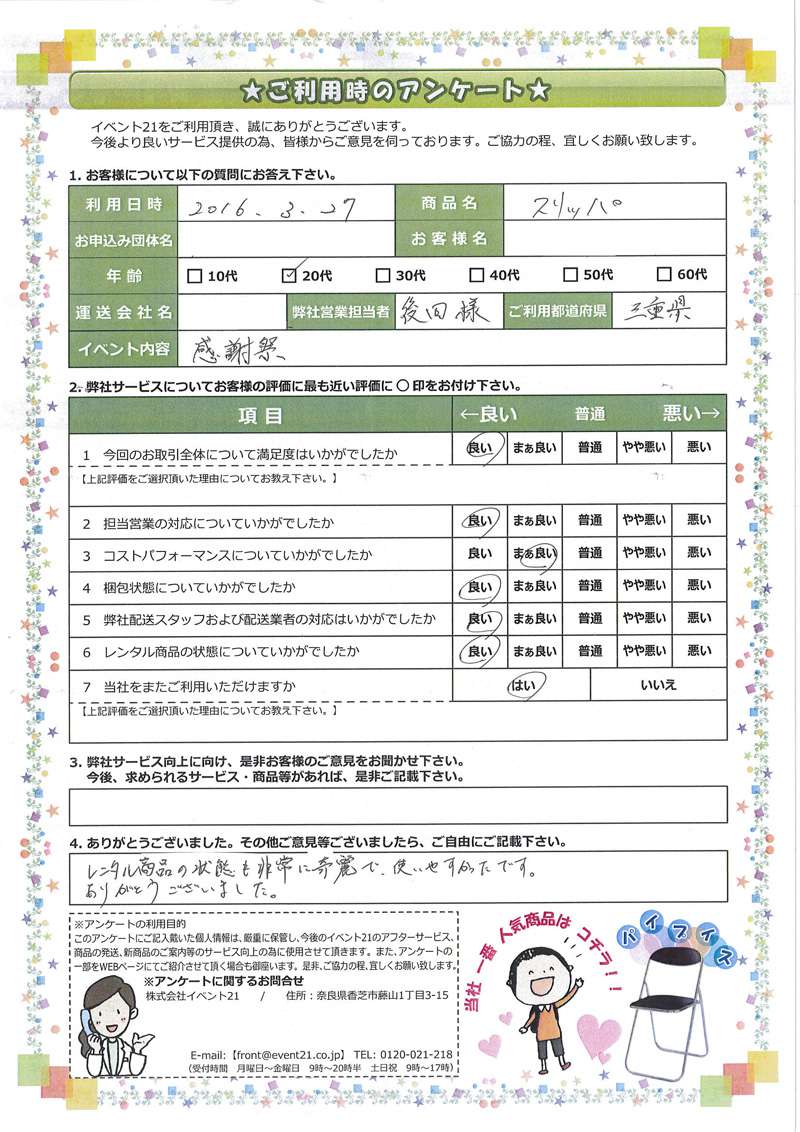 ★ご利用時のアンケート★
イベント21をご利用頂き、誠にありがとうございます。
今後より良いサービス提供の為、皆様からご意見を伺っております。ご協力の程、宜しくお願い致します。
1. お客様について以下の質問にお答え下さい。
利用日時 2016. 3. 27 商品名 スリッパ
お申込み団体名 お客様名
年齢 □10代 ☑20代 □30代 □40代 □50代 □60代
運送会社名 弊社営業担当者 後田様 ご利用都道府県 三重県
イベント内容 感謝祭
2. 弊社サービスについてお客様の評価に最も近い評価に ○ 印をお付け下さい。
項目 ←良い 普通 悪い→
1 今回のお取引全体について満足度はいかがでしたか 良い まぁ良い 普通 やや悪い 悪い
【上記評価をご選択頂いた理由についてお教え下さい。】
2 担当営業の対応についていかがでしたか 良い まぁ良い 普通 やや悪い 悪い
3 コストパフォーマンスについていかがでしたか 良い まぁ良い 普通 やや悪い 悪い
4 梱包状態についていかがでしたか 良い まぁ良い 普通 やや悪い 悪い
5 弊社配送スタッフおよび配送業者の対応はいかがでしたか 良い まぁ良い 普通 やや悪い 悪い
6 レンタル商品の状態についていかがでしたか 良い まぁ良い 普通 やや悪い 悪い
7 当社をまたご利用いただけますか はい いいえ
【上記評価をご選択頂いた理由についてお教え下さい。】
3. 弊社サービス向上に向け、是非お客様のご意見をお聞かせ下さい。
今後、求められるサービス・商品等があれば、是非ご記載下さい。
4. ありがとうございました。その他ご意見等ございましたら、ご自由にご記載下さい。
レンタル商品の状態も非常に奇麗で、使いやすかったです。
ありがとうございました。
※アンケートの利用目的
このアンケートにご記入戴いた個人情報は、厳重に保管し、今後のイベント21のアフターサービス、
商品の発送、新商品のご案内等のサービス向上の為に使用させて頂きます。また、アンケートの
一部をWEBページにてご紹介させて頂く場合も御座います。是非、ご協力の程、宜しくお願い致します。
※アンケートに関するお問合せ
株式会社イベント21 / 住所：奈良県香芝市藤山1丁目3-15
E-mail:【front@event21.co.jp】 TEL: 0120-021-218
（受付時間 月曜日～金曜日 9時～20時半 土日祝 9時～17時）
当社一番人気商品はコチラ！！
パイプイス